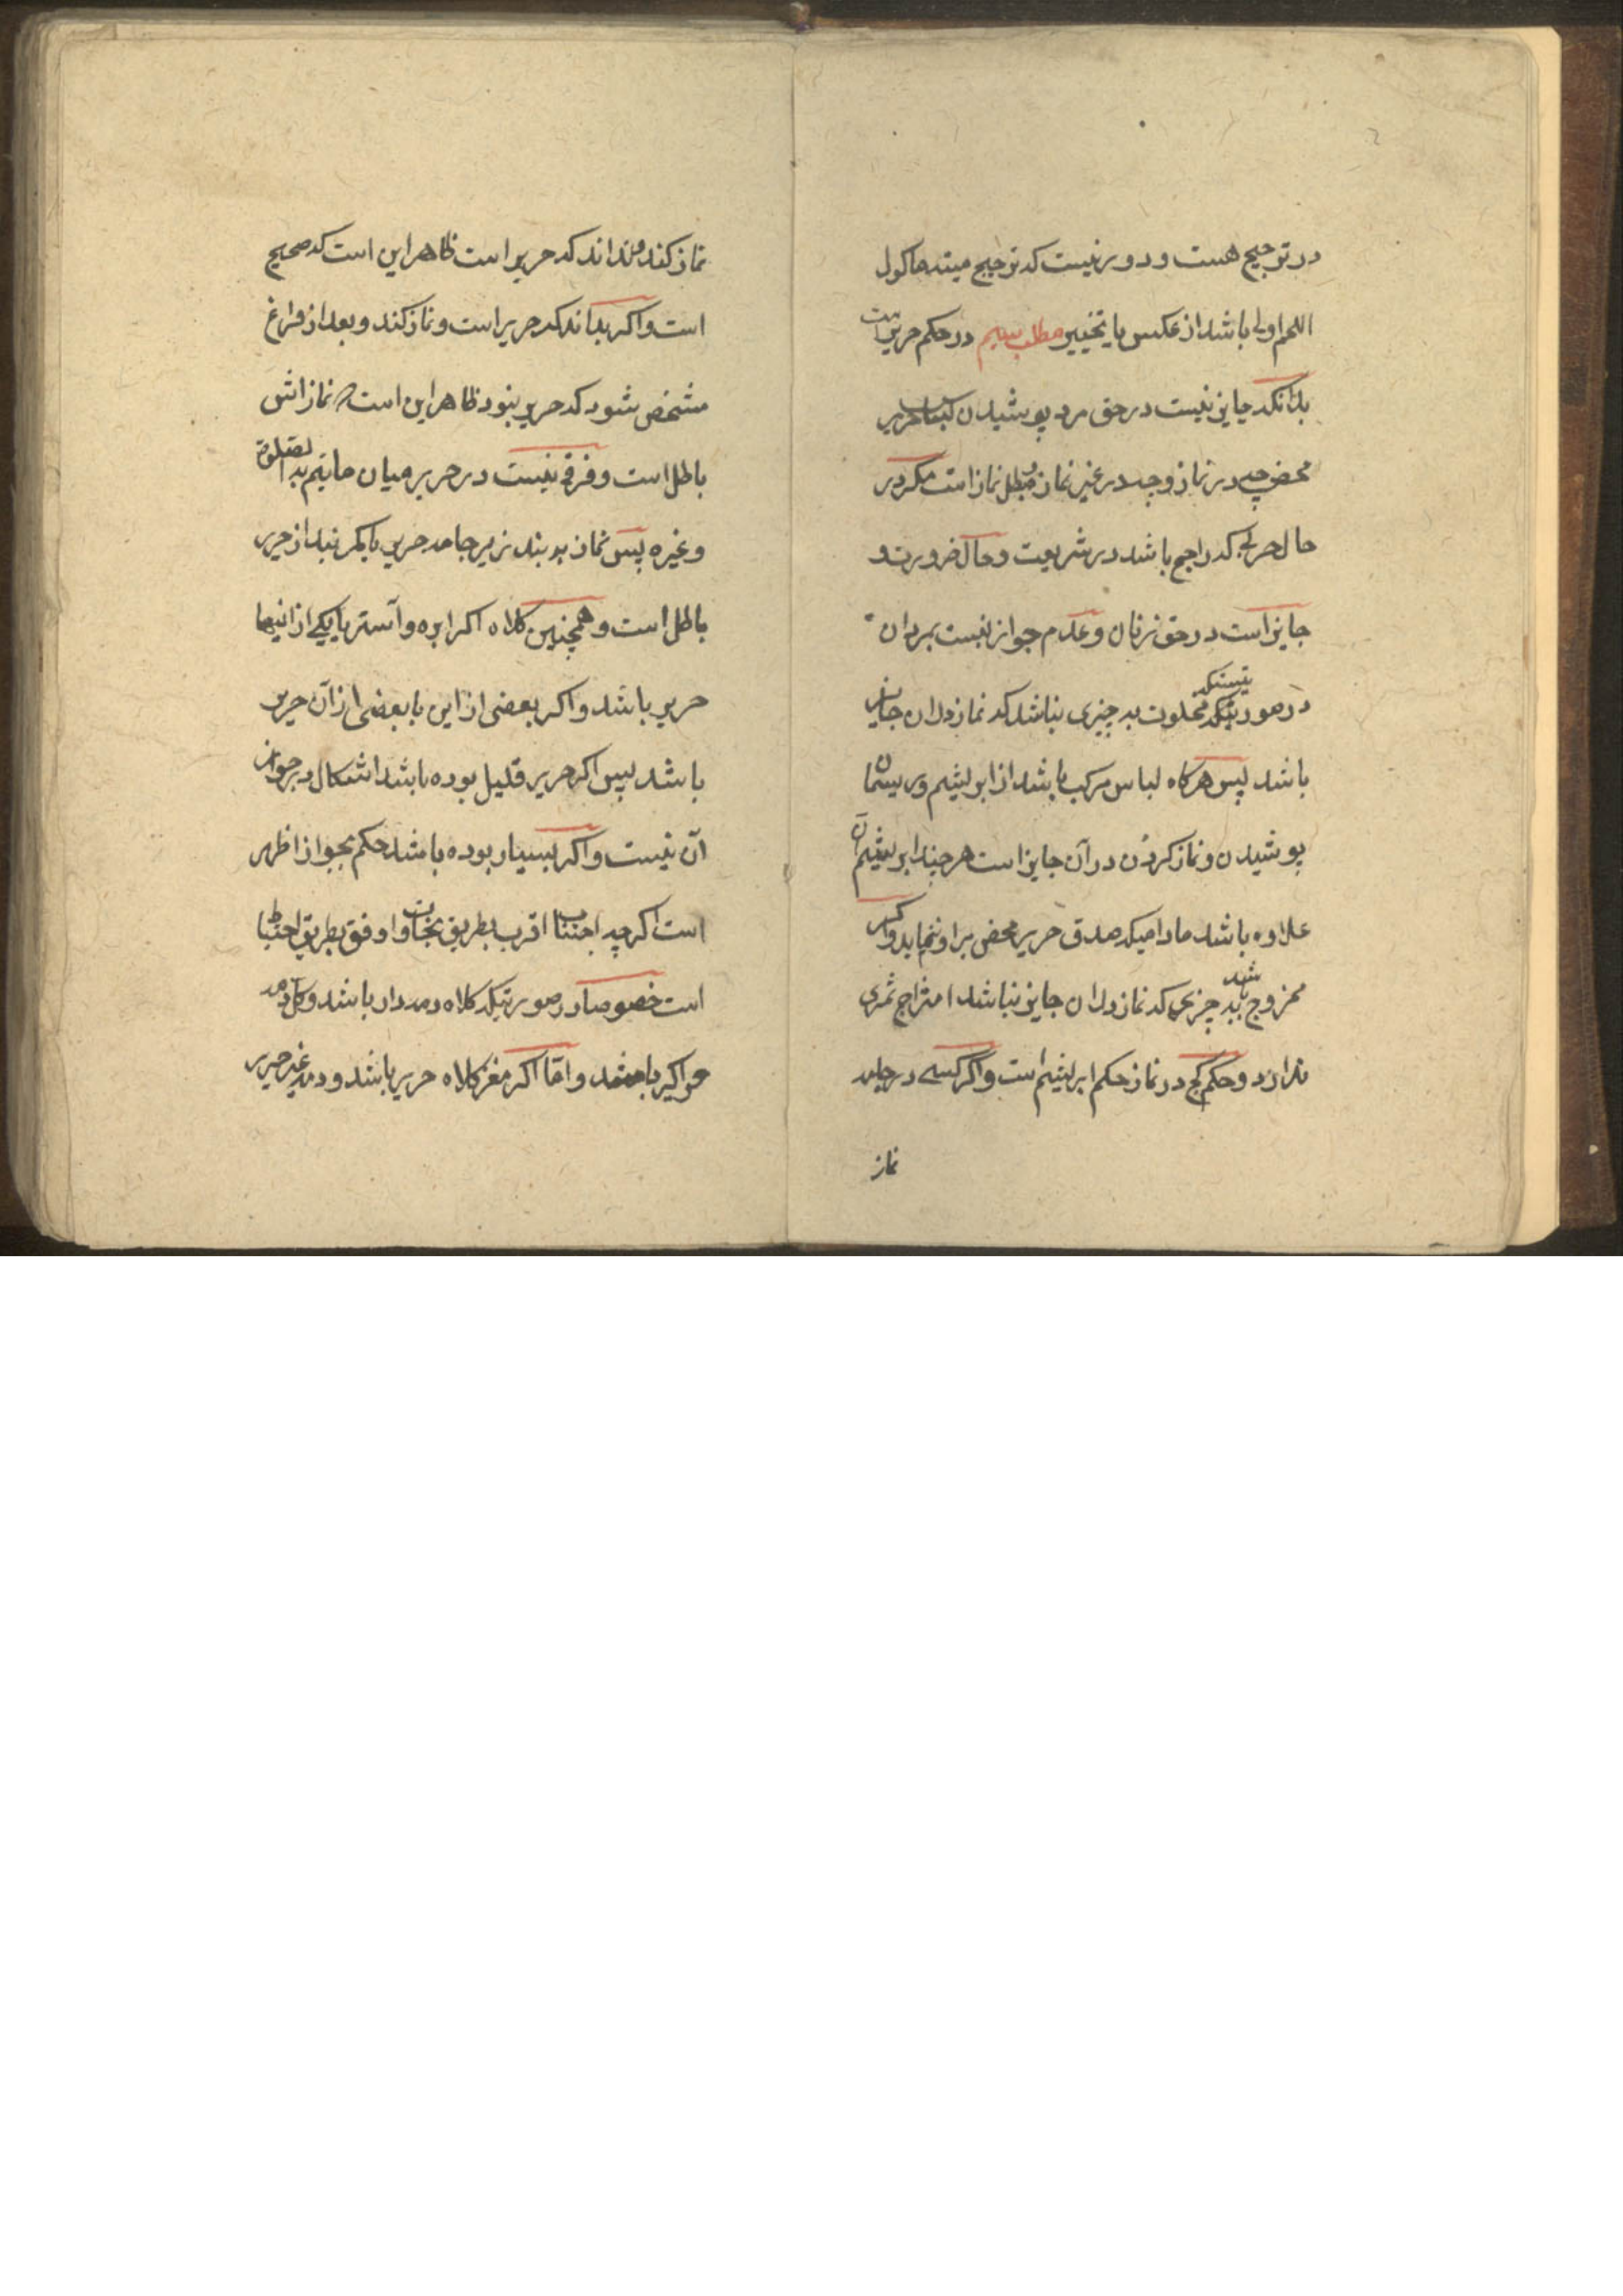 در ترجیح هست و دور نیست که ترجیح میته ماکول
اللحم اولی باشد از عکس یا تخییر مطلب سیم در حکم حریر است
بدانکه جایز نیست در حق مرد پوشیدن لباس حریر
محض چه در نماز و چه در غیر نماز و مبطل نماز است مکر در
حال حربی که راجح باشد در شریعت و حال ضرورت و
جایز است در حق زنان و عدم جواز نیست بمردان
در صورتیکه مخلوت به چیزی نباشد که نماز در ان جایز
باشد پس هرکاه لباس مرکب باشد از ابریشم و ریسمان
پوشیدن و نماز کردن در آن جایز است هر چند ابریشم آن
علاوه باشد مادامیکه صدق حریر محض بر او ننماید و اکر
ممزوج باشد به چیزی که نماز در ان جایز نباشد امتزاج ثمری
ندارد و حکم کج در نماز حکم ابریشم است و اکر کسی در جامه
نماز
نماز کند و نداند که حریر است ظاهر این است که صحیح
است و اکر بداند که حریر است و نماز کند و بعد از فراغ
مشخص شود که حریر نبود ظاهر این است که نمازاش
باطل است و فرقی نیست در حریر میان ما یتم به الصلوة
و غیره پس نماز به بند زیر جامه حریر یا کمر بند از حریر
باطل است و همچنین کلاه اکر ابره و آستر یا یکی از اینها
حریر باشد و اکر بعضی از این یا بعضی از آن حریر
باشد پس اکر حریر قلیل بوده باشد اشکال در جواز
آن نیست و اکر بسیار بوده باشد حکم بجواز اظهر
است اکرچه اجتناب اقرب بطریق نجات و اوفق بطریق احتیاط
است خصوصا در صورتیکه کلاه دمه دار باشد و کل دمه
حریر باشد و امّا اکر مغز کلاه حریر باشد و دمه غیر حریر